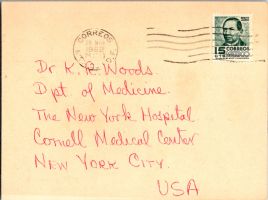 CORREOS
1962
15
CORREOS
Dr K. R. Woods
Dpt. of Medicine.
The New York Hospital
Cornell Medical Center
NEW YORK CITY.
USA